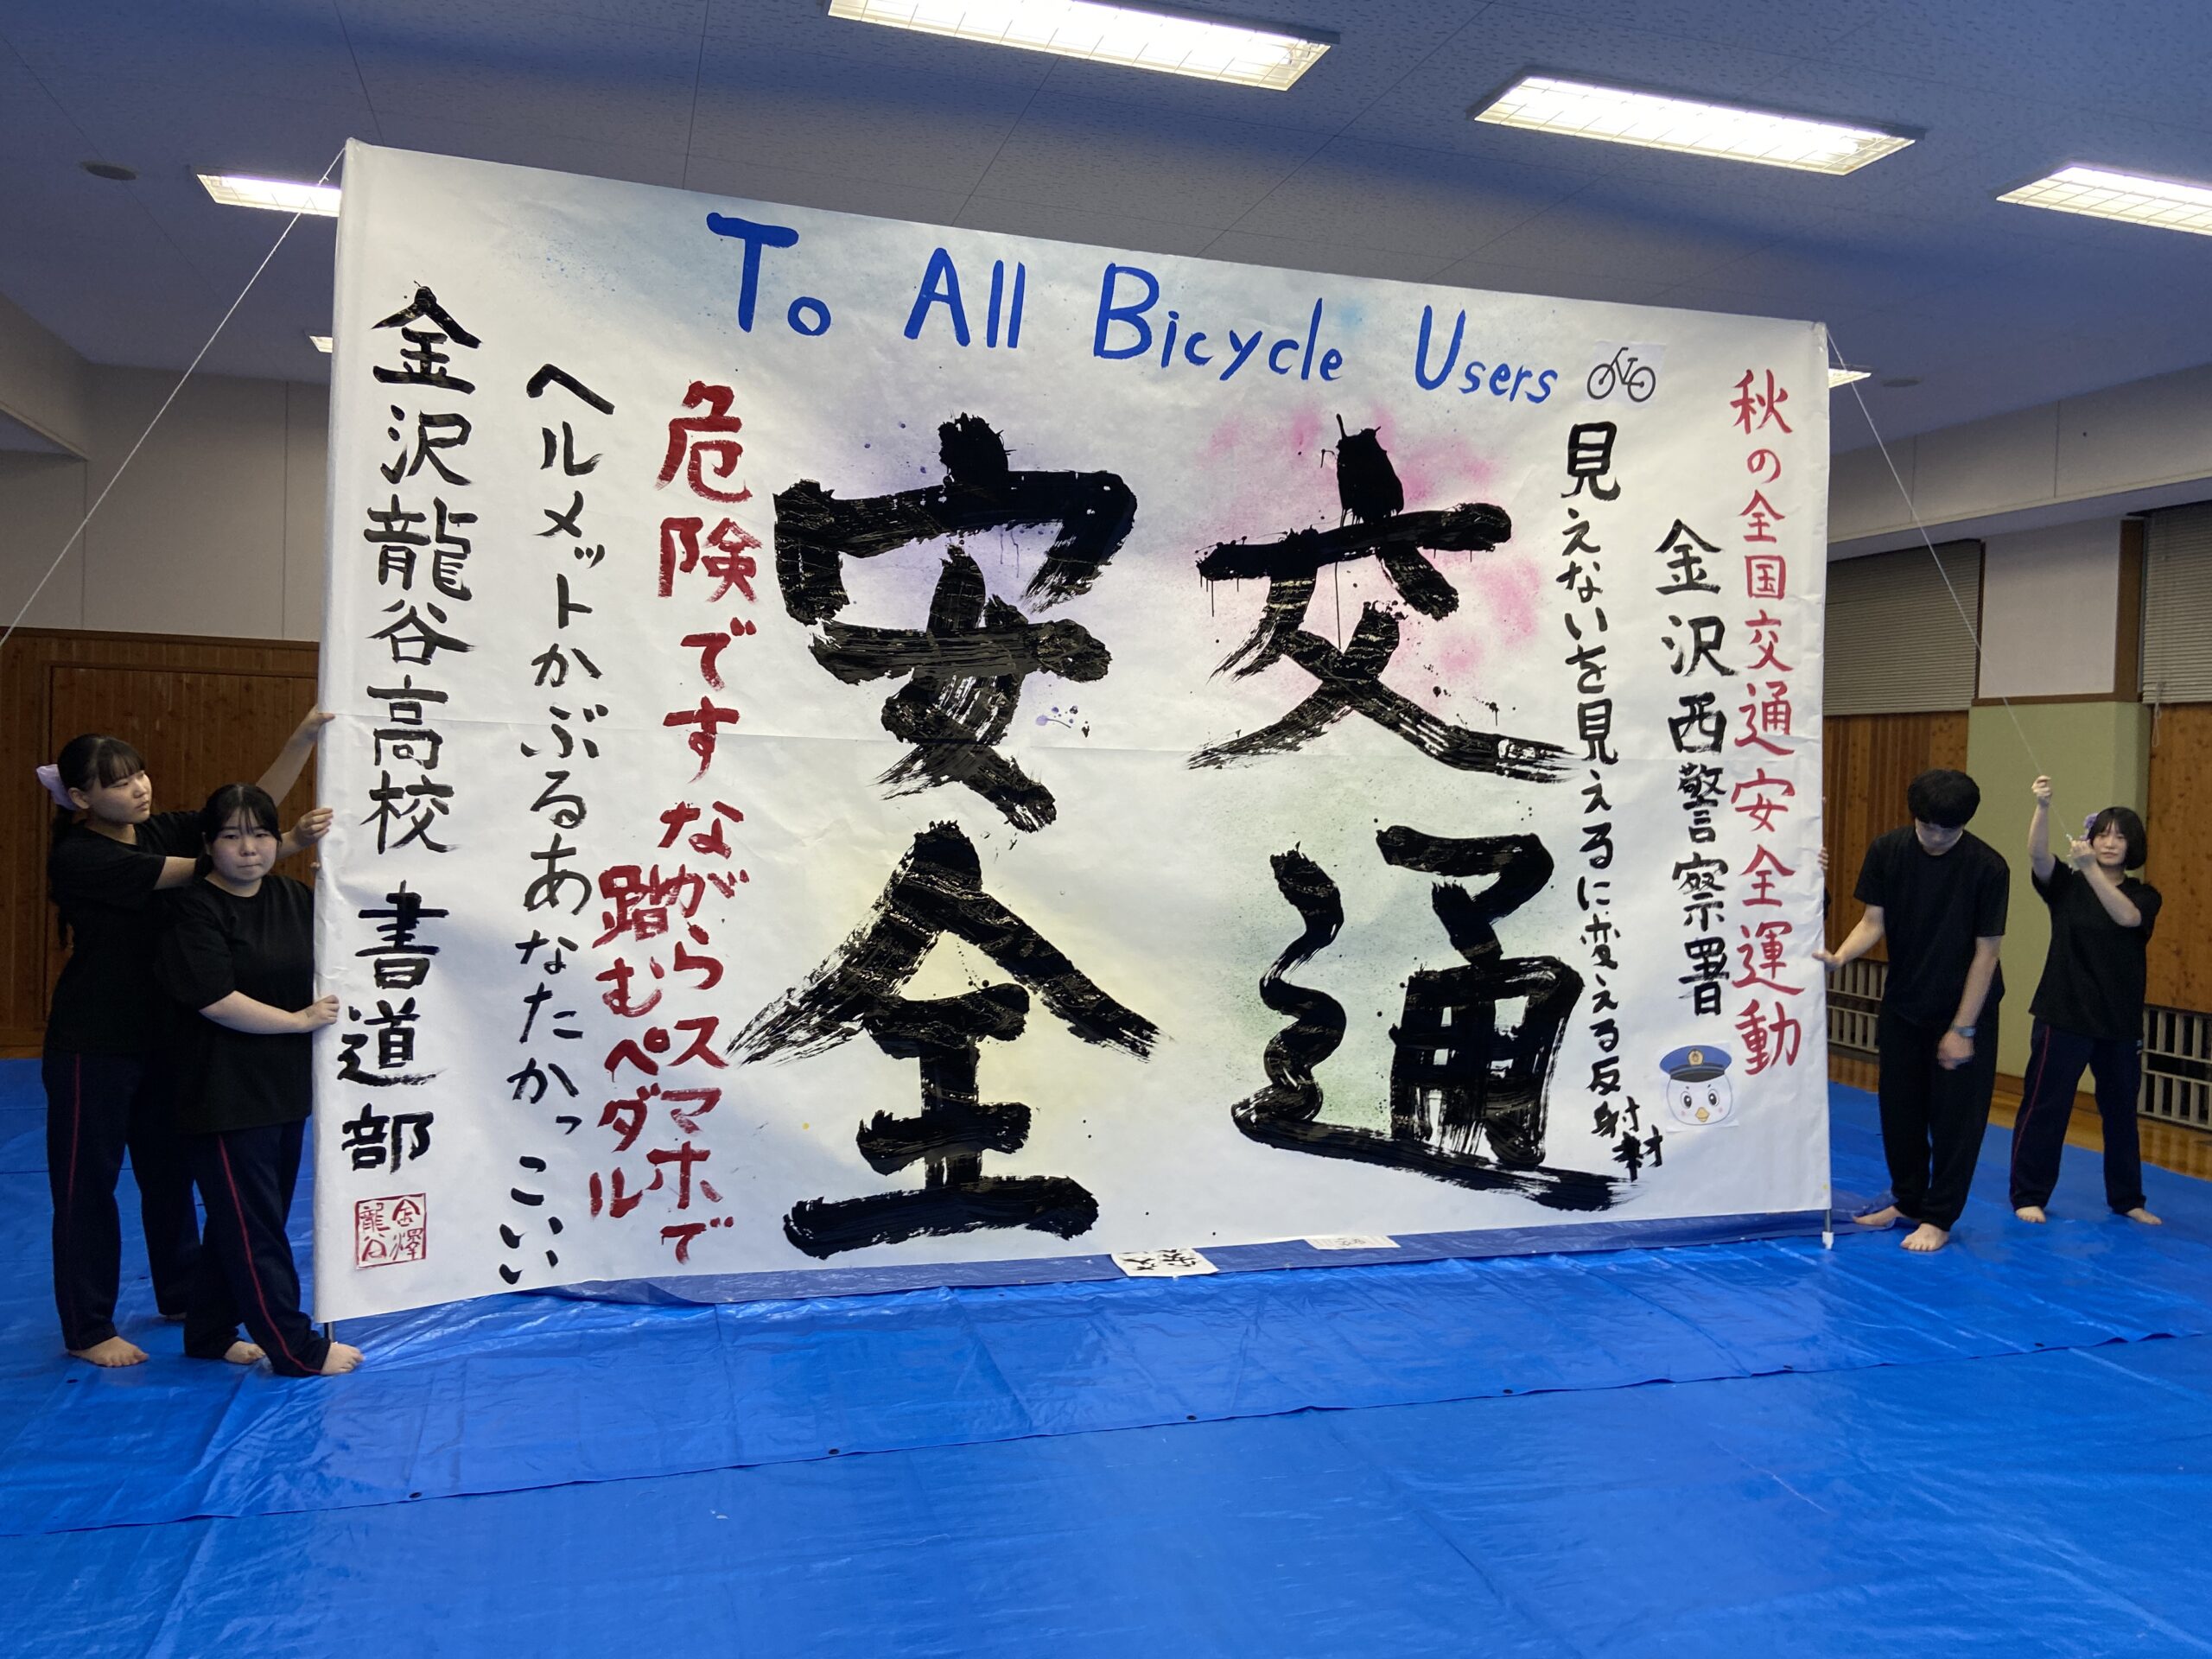 To All Bicycle Users
秋の全国交通安全運動
金沢西警察署
見えないを見えるに変える反射材
交通
安全
危険ですながらスマホで
踏むペダル
ヘルメットかぶるあなたかっこいい
金沢龍谷高校 書道部
金澤
龍谷